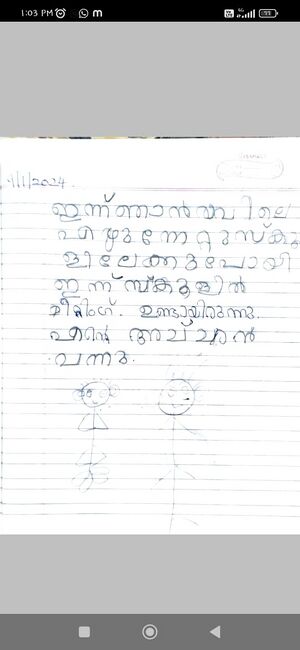 1:03 PM
1/1/2024
ഇന്ന് ഞാൻ രാവിലെ
എഴുന്നേറ്റു സ്കൂ
ളിലേക്കുപോയി
ഇന്ന് സ്കൂളിൽ
മീറ്റിംഗ്. ഉണ്ടായിരുന്നു.
എന്റെ അച്ഛൻ
വന്നു.